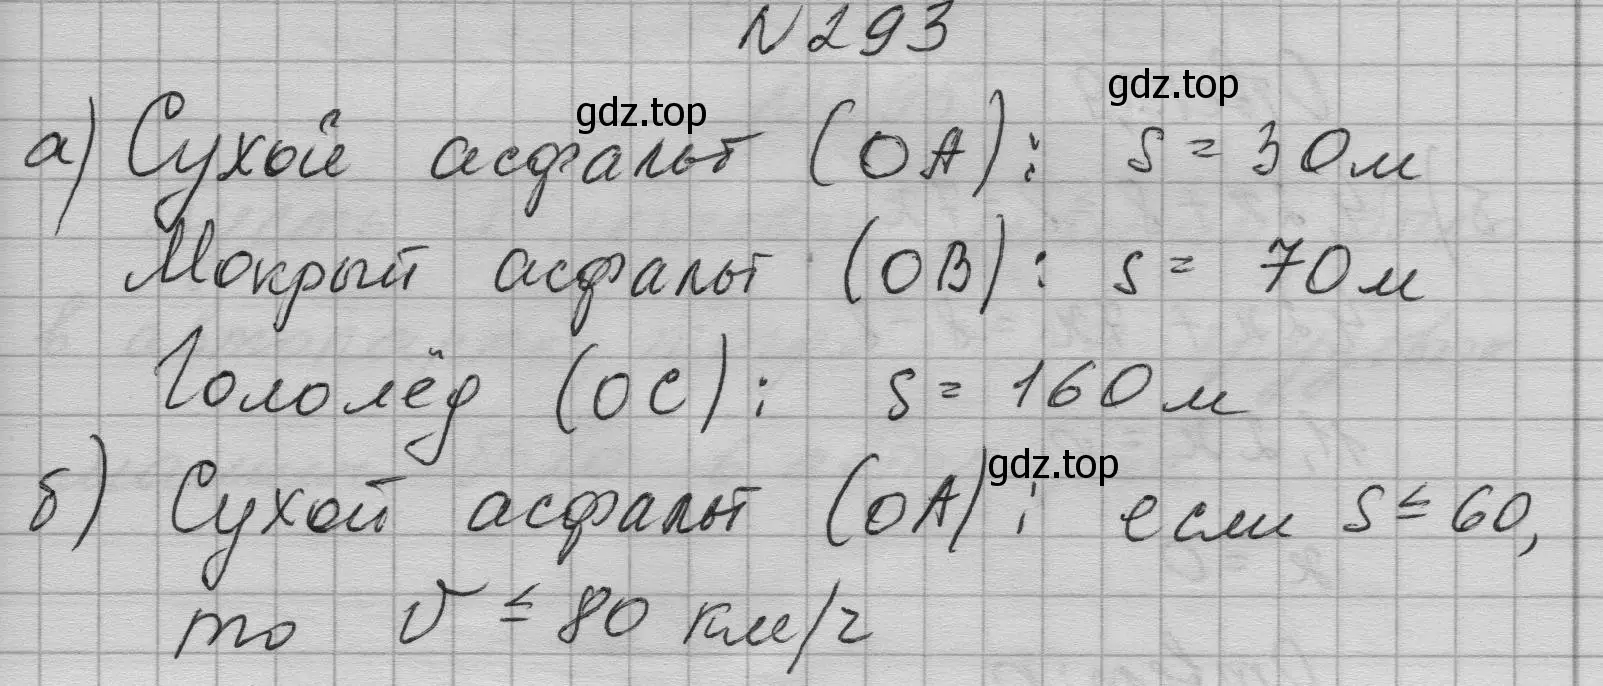 N 293
gdz.top
gdz.top
а) Сухой асфальт (ОА): s = 30 м
Мокрый асфальт (ОВ): s = 70 м
Гололёд (ОС): s = 160 м
gdz.top
б) Сухой асфальт (ОА): если s ≤ 60,
то v ≤ 80 км/ч